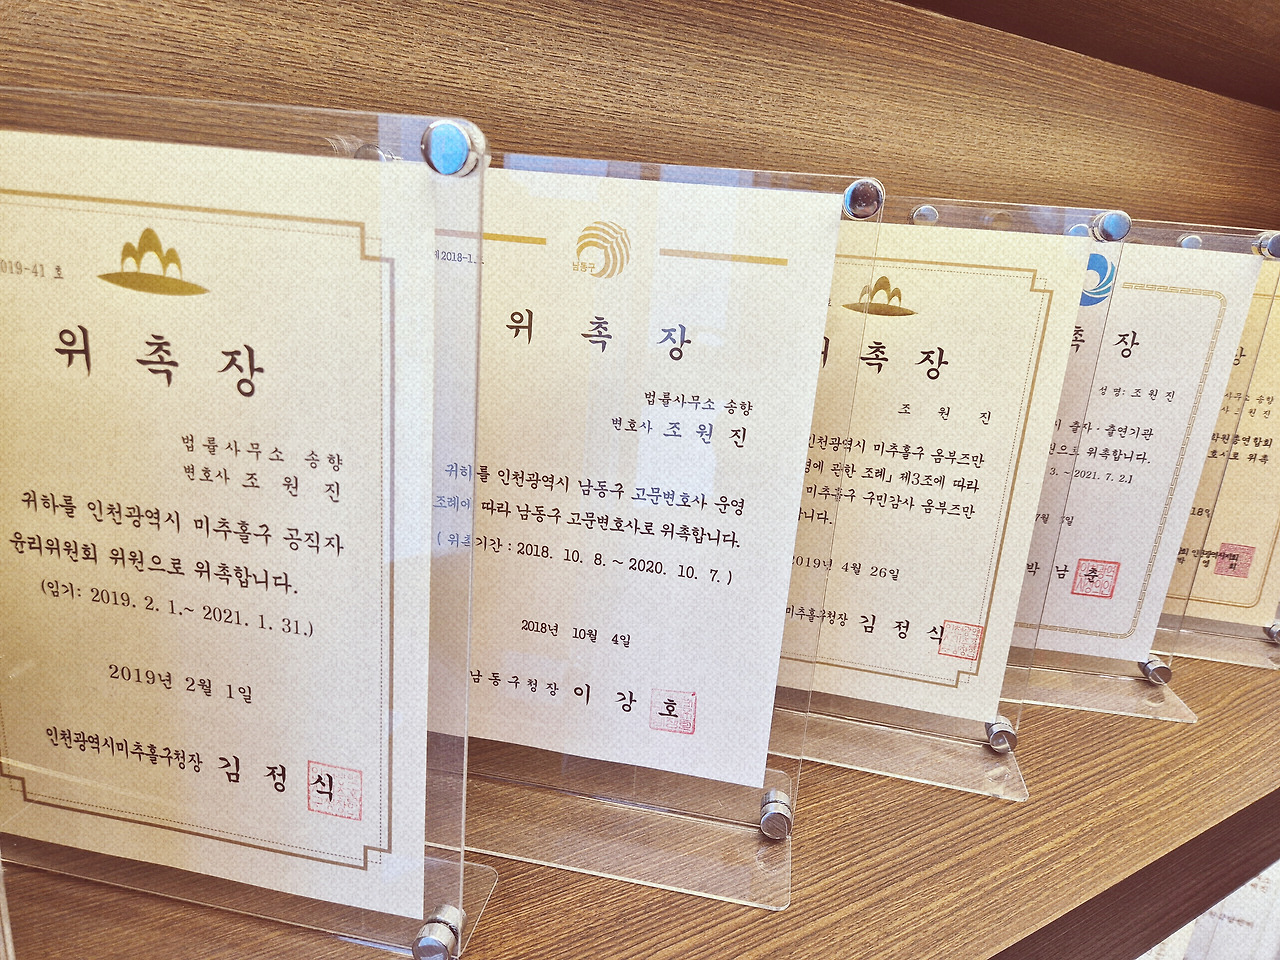 019-41 호
위 촉 장
법률사무소 송향
변호사 조 원 진
귀하를 인천광역시 미추홀구 공직자
윤리위원회 위원으로 위촉합니다.
(임기: 2019. 2. 1.~ 2021. 1. 31.)
2019년 2월 1일
인천광역시미추홀구청장 김 정 식
2018-1
남동구
위 촉 장
법률사무소 송향
변호사 조 원 진
귀하를 인천광역시 남동구 고문변호사 운영
조례에 따라 남동구 고문변호사로 위촉합니다.
( 위촉기간 : 2018. 10. 8. ~ 2020. 10. 7. )
2018년 10월 4일
남동구청장 이 강 호
촉 장
조 원 진
인천광역시 미추홀구 옴부즈만
에 관한 조례」 제3조에 따라
미추홀구 구민감사 옴부즈만
니다.
2019년 4월 26일
미추홀구청장 김 정 식
촉 장
성 명: 조 원 진
출자·출연기관
으로 위촉합니다.
3. ~ 2021. 7. 2.]
박 남 춘
장
송향
조 원 진
학원총연합회
호사로 위촉